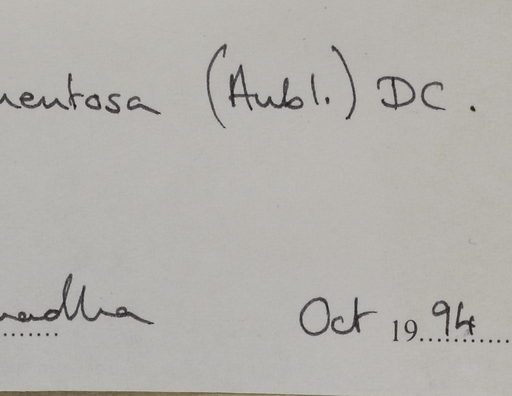 mentosa (Aubl.) DC.
Oct 1994